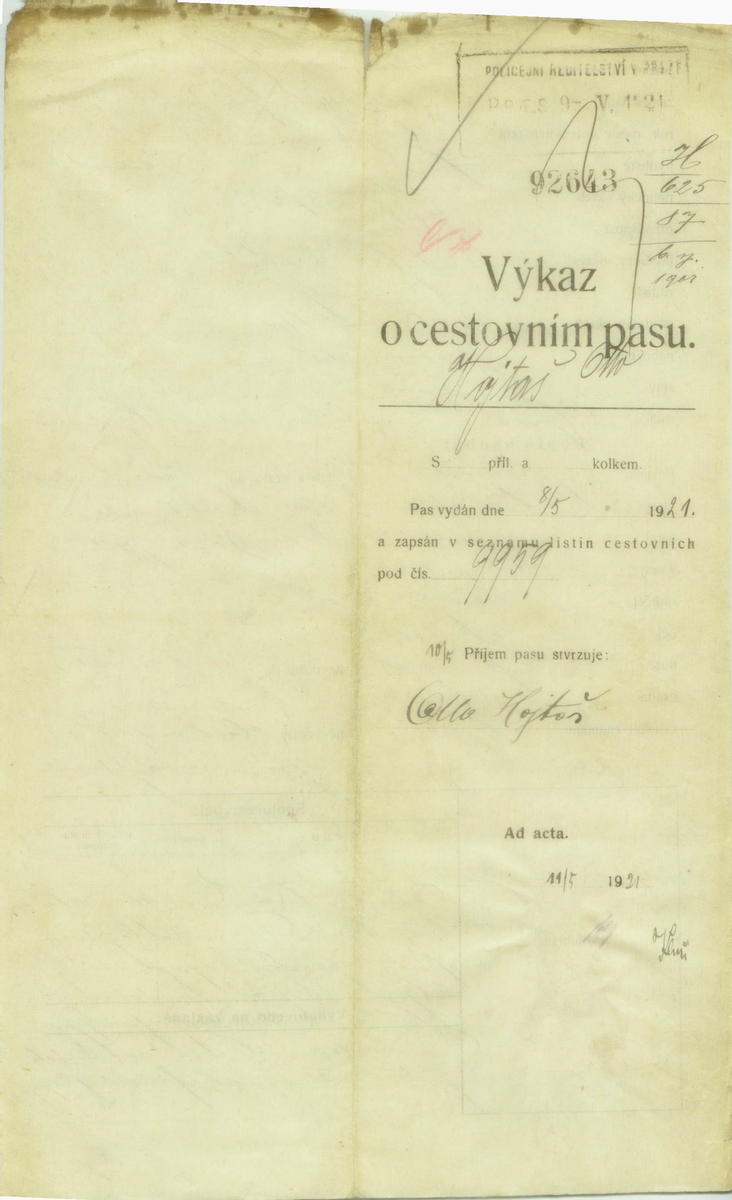 POLICEJNÍ ŘEDITELSTVÍ V PRAZE
PRES 9- V. 1921
92643
H
625
87
Výkaz
o cestovním pasu.
Hojtaš Otto
S příl. a kolkem.
Pas vydán dne 8/5 1921.
a zapsán v seznamu listin cestovních
pod čís. 9959
10/5 Příjem pasu stvrzuje:
Otto Hojtaš
Ad acta.
11/5 1921